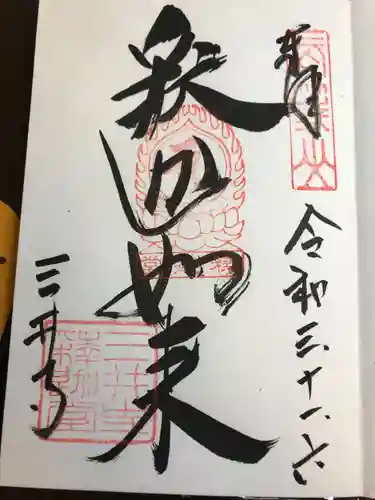 奉拝
令和三・十一・六
釈迦如来
三井寺
三井寺釋迦堂